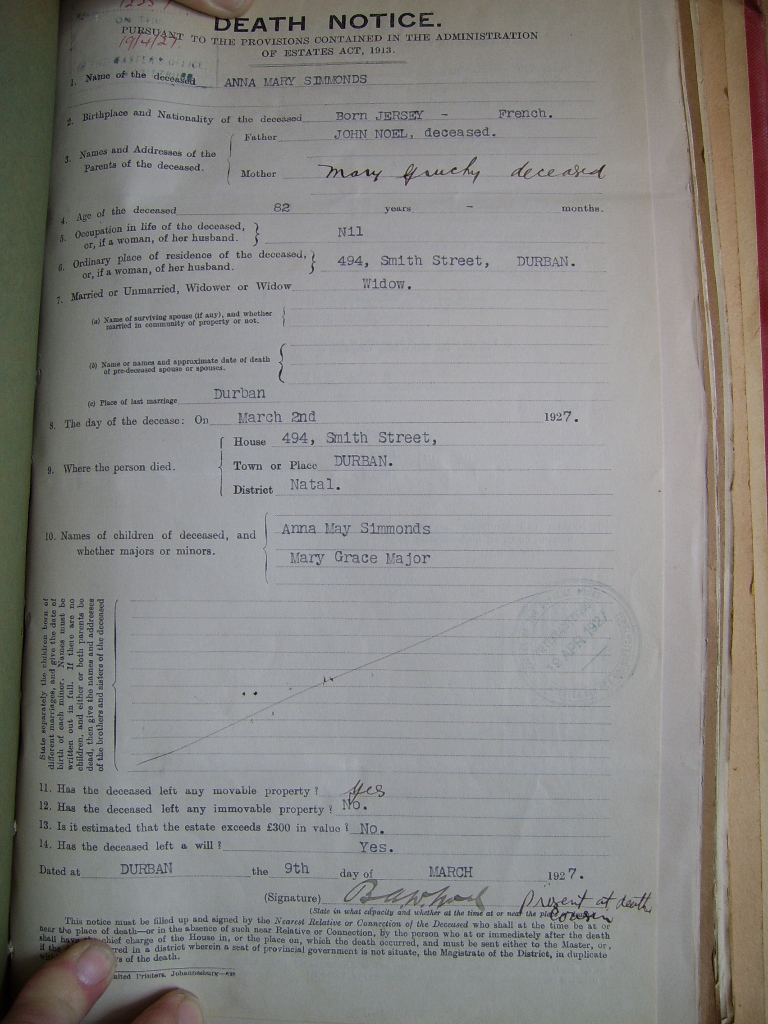 ON THE
19/4/27
DEATH NOTICE.
PURSUANT TO THE PROVISIONS CONTAINED IN THE ADMINISTRATION
OF ESTATES ACT, 1913.
1. Name of the deceased ANNA MARY SIMMONDS
2. Birthplace and Nationality of the deceased Born JERSEY - French.
3. Names and Addresses of the Parents of the deceased.
Father JOHN NOEL, deceased.
Mother Mary Gruchy deceased
4. Age of the deceased 82 years - months.
5. Occupation in life of the deceased, or, if a woman, of her husband. Nil
6. Ordinary place of residence of the deceased, or, if a woman, of her husband. 494, Smith Street, DURBAN.
7. Married or Unmarried, Widower or Widow Widow.
(a) Name of surviving spouse (if any), and whether married in community of property or not.
(b) Name or names and approximate date of death of pre-deceased spouse or spouses.
(c) Place of last marriage Durban
8. The day of the decease: On March 2nd 1927.
9. Where the person died.
House 494, Smith Street,
Town or Place DURBAN.
District Natal.
10. Names of children of deceased, and whether majors or minors.
Anna May Simmonds
Mary Grace Major
State separately the children born of
different marriages, and give the date of
birth of each minor. Names must be
written out in full. If there are no
children, and either or both parents be
dead, then give the names and addresses
of the brothers and sisters of the deceased
19 APR 1927
11. Has the deceased left any movable property? Yes
12. Has the deceased left any immovable property? No.
13. Is it estimated that the estate exceeds £300 in value? No.
14. Has the deceased left a will? Yes.
Dated at DURBAN the 9th day of MARCH 1927.
(Signature) Present at death
(State in what capacity and whether at the time at or near the Cousin
This notice must be filled up and signed by the Nearest Relative or Connection of the Deceased who shall at the time be at or
near the place of death—or in the absence of such near Relative or Connection, by the person who at or immediately after the death
shall have chief charge of the House in, or the place on, which the death occurred, and must be sent either to the Master, or,
if the occurred in a district wherein a seat of provincial government is not situate, the Magistrate of the District, in duplicate
of the death.
Printers, Johannesburg